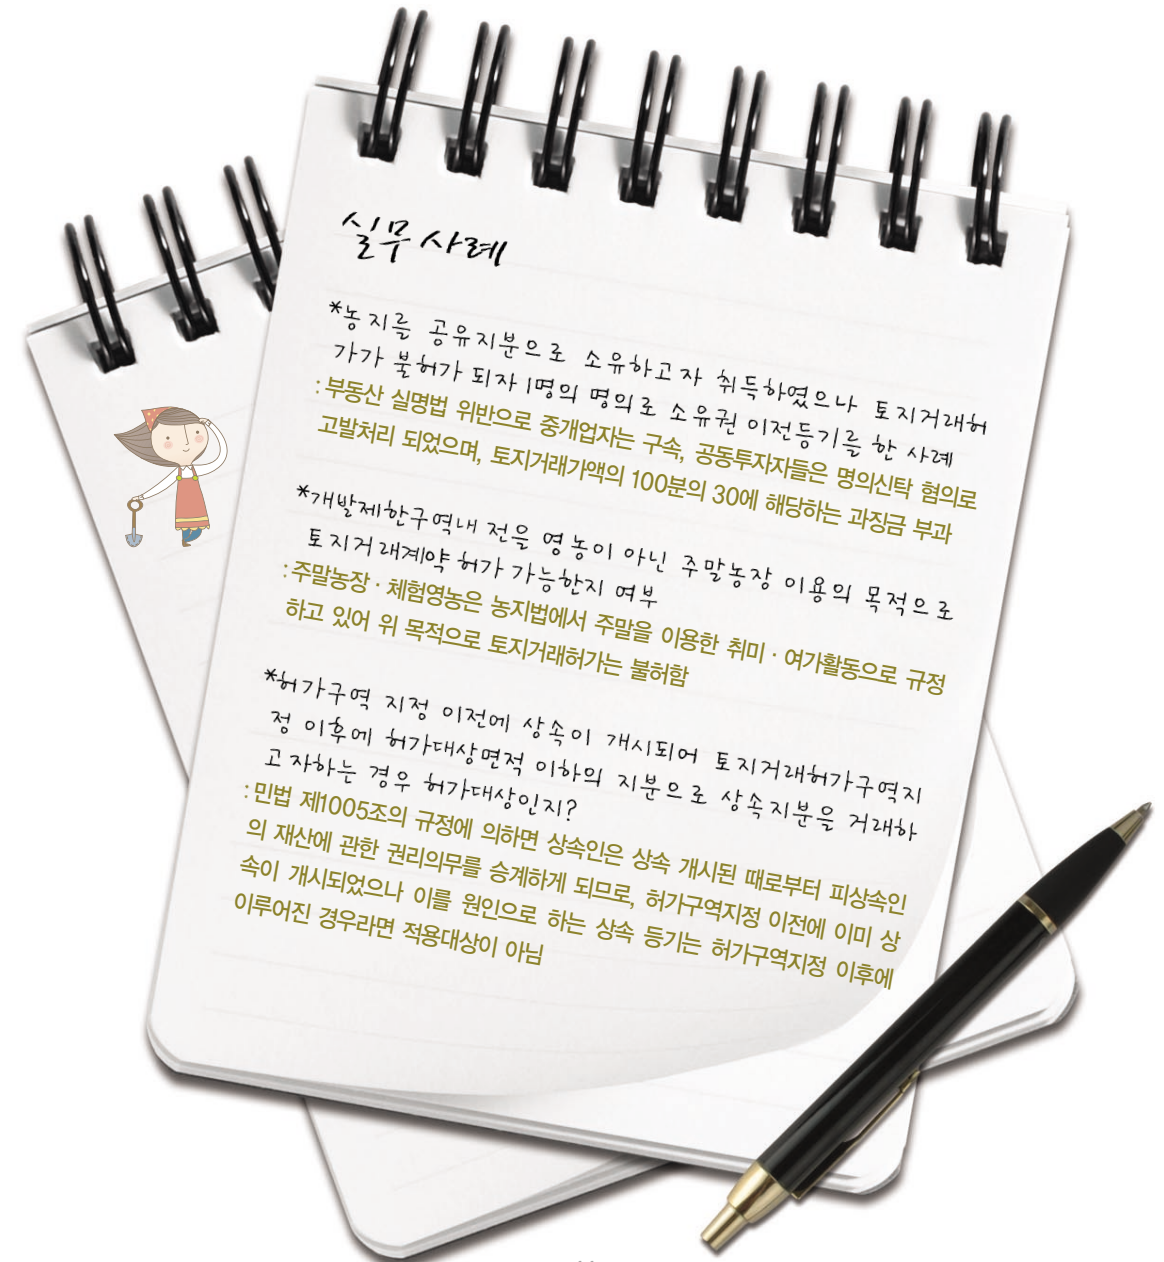 실무 사례
*농지를 공유지분으로 소유하고자 취득하였으나 토지거래허
가가 불허가 되자 1명의 명의로 소유권 이전등기를 한 사례
: 부동산 실명법 위반으로 중개업자는 구속, 공동투자자들은 명의신탁 혐의로
고발처리 되었으며, 토지거래가액의 100분의 30에 해당하는 과징금 부과
*개발제한구역내 전을 영농이 아닌 주말농장 이용의 목적으로
토지거래계약 허가 가능한지 여부
: 주말농장 · 체험영농은 농지법에서 주말을 이용한 취미 · 여가활동으로 규정
하고 있어 위 목적으로 토지거래허가는 불허함
*허가구역 지정 이전에 상속이 개시되어 토지거래허가구역지
정 이후에 허가대상면적 이하의 지분으로 상속지분을 거래하
고자하는 경우 허가대상인지?
: 민법 제1005조의 규정에 의하면 상속인은 상속 개시된 때로부터 피상속인
의 재산에 관한 권리의무를 승계하게 되므로, 허가구역지정 이전에 이미 상
속이 개시되었으나 이를 원인으로 하는 상속 등기는 허가구역지정 이후에
이루어진 경우라면 적용대상이 아님